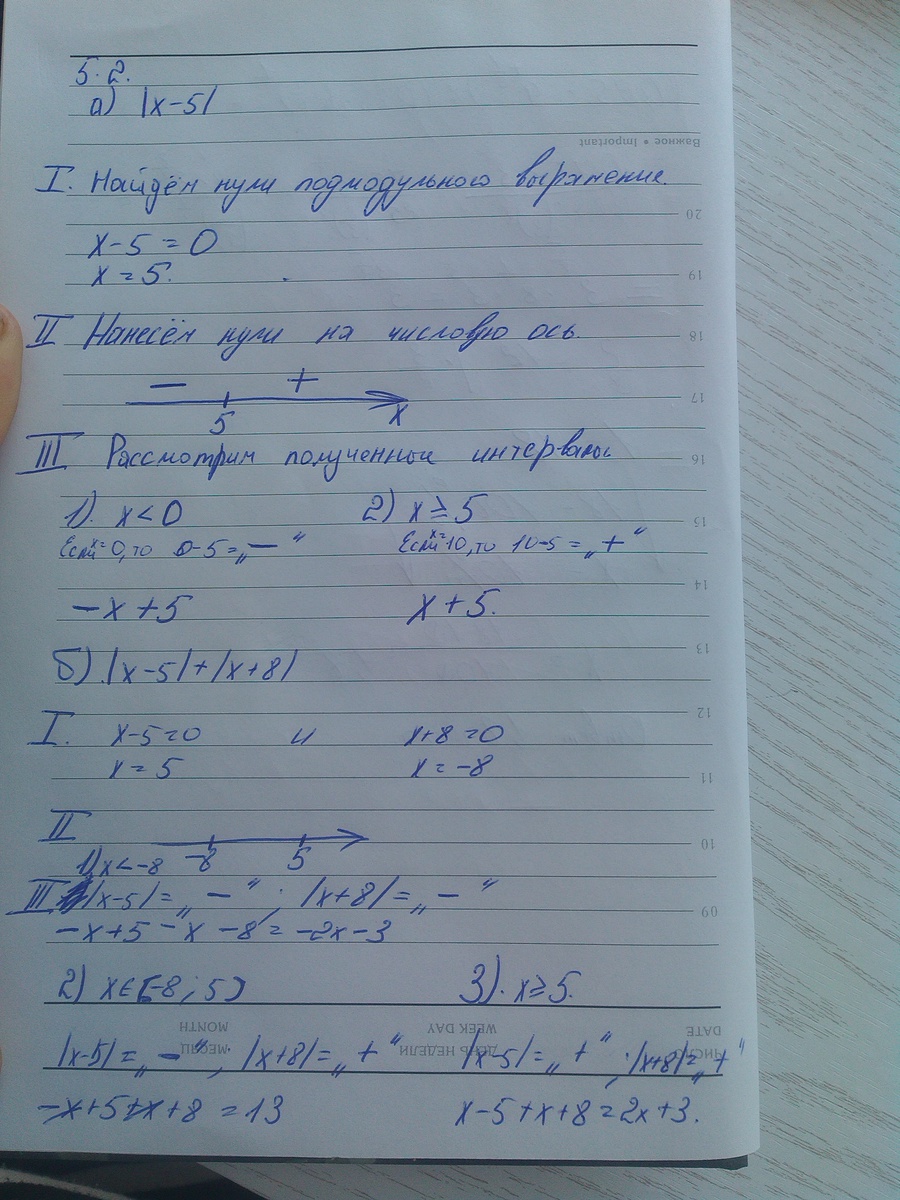 5.2.
а) |x-5|
Важное • Important
I. Найдём нули подмодульного выражения.
20
x-5=0
x=5.
19
II Нанесём нули на числовую ось.
18
- +
17
5 x
III Рассмотрим полученные интервалы
16
1). x<0 2) x≥5
15
Если x=0, то 0-5=„-“ Если x=10, то 10-5=„+“
14
-x+5 x+5.
13
б) |x-5|+|x+8|
12
I. x-5=0 и x+8=0
x=5 x=-8
11
II
10
1) x<-8 -8 5
III |x-5|=„-“; |x+8|=„-“
09
-x+5-x-8=-2x-3
2) x∈[-8;5) 3). x≥5.
МЕСЯЦ MONTH ДЕНЬ НЕДЕЛИ WEEK DAY ЧИСЛО DATE
|x-5|=„-“, |x+8|=„+“ |x-5|=„+“; |x+8|=„+“
-x+5+x+8=13 x-5+x+8=2x+3.